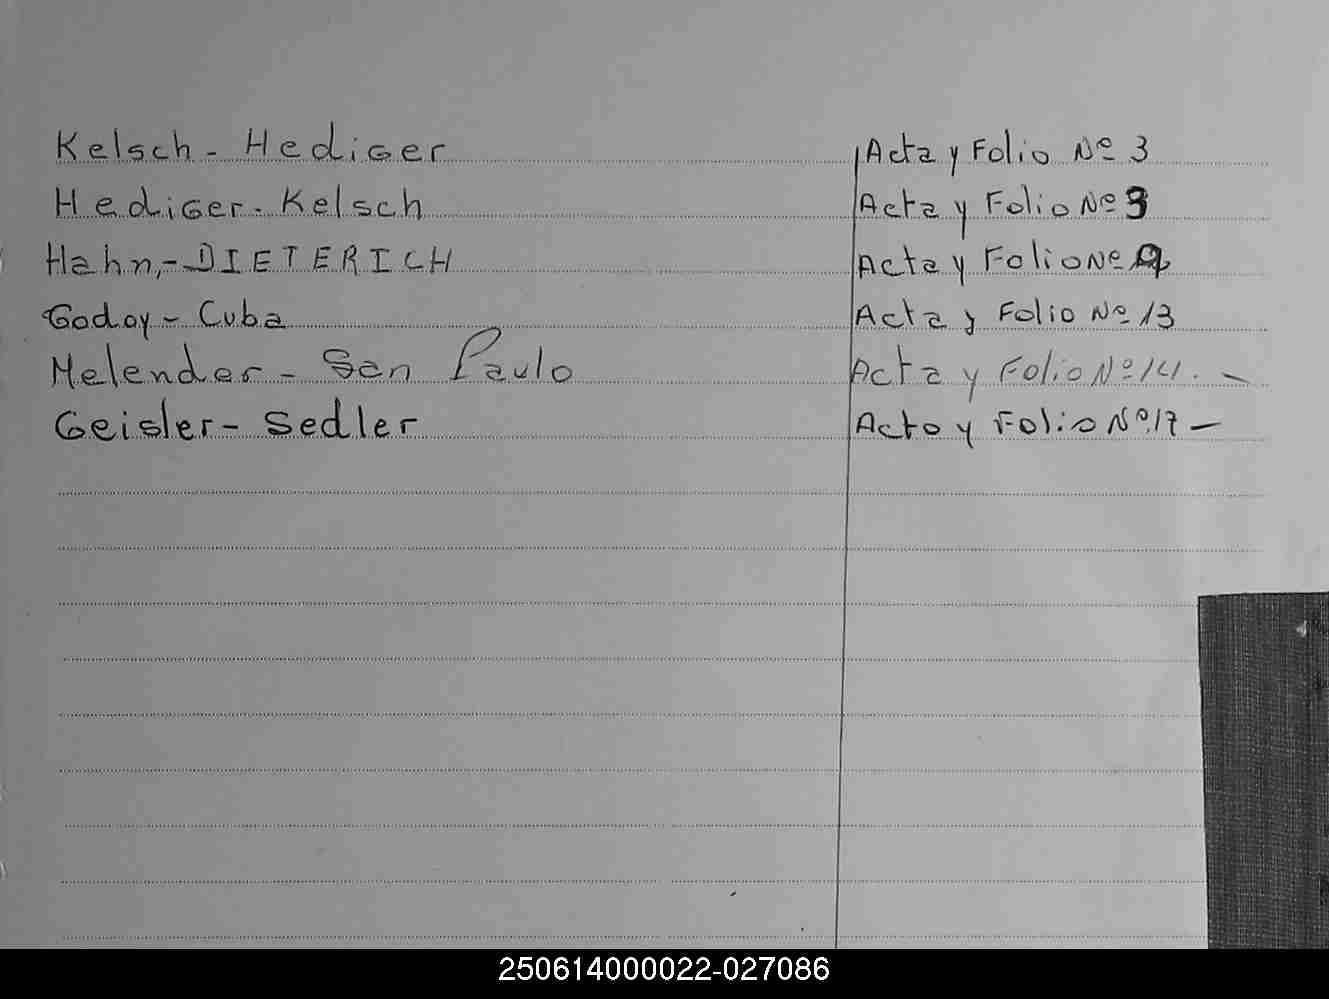 Kelsch - Hediger Acta y Folio Nº 3
Hediger - Kelsch Acta y Folio Nº 3
Hahn,- DIETERICH Acta y Folio Nº 9
Godoy - Cuba Acta y Folio Nº 13
Melender - San Paulo Acta y Folio Nº 14. -
Geisler - Sedler Acta y Folio Nº 17 -
250614000022-027086